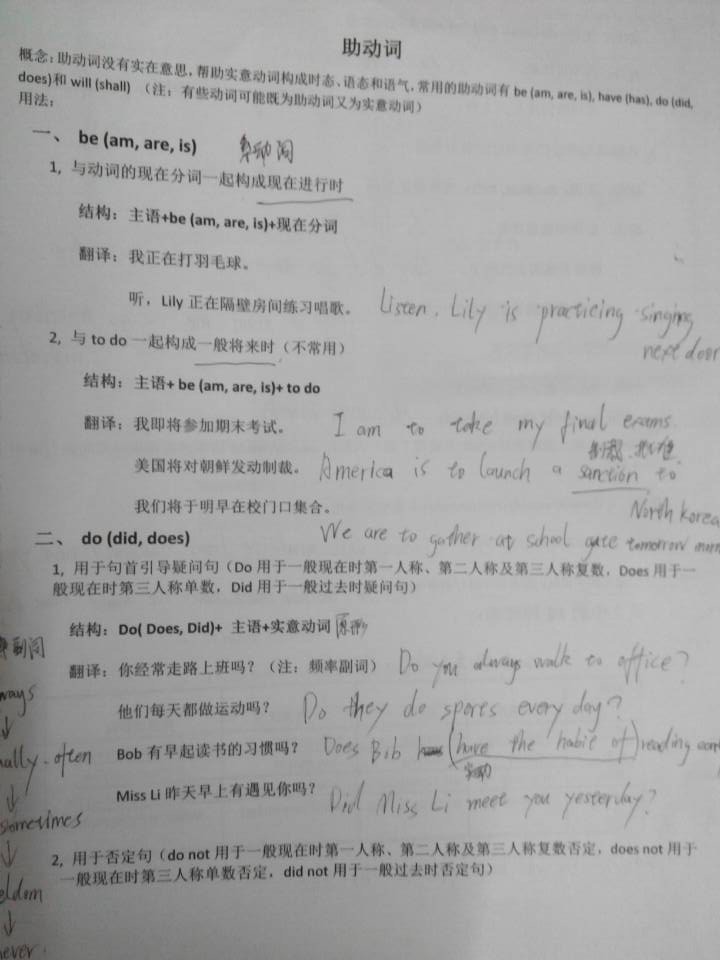 助动词
概念：助动词没有实在意思，帮助实意动词构成时态、语态和语气，常用的助动词有 be (am, are, is), have (has), do (did,
does)和 will (shall) （注：有些动词可能既为助动词又为实意动词）
用法：
一、 be (am, are, is) 系动词
1, 与动词的现在分词一起构成现在进行时
结构：主语+be (am, are, is)+现在分词
翻译：我正在打羽毛球。
听，Lily 正在隔壁房间练习唱歌。 Listen, Lily is practicing singing
next door
2, 与 to do 一起构成一般将来时（不常用）
结构：主语+ be (am, are, is)+ to do
翻译：我即将参加期末考试。 I am to take my final exams.
制裁
美国将对朝鲜发动制裁。 America is to launch a sanction to
North Korea
我们将于明早在校门口集合。
We are to gather at school gate tomorrow
二、 do (did, does)
1, 用于句首引导疑问句（Do 用于一般现在时第一人称、第二人称及第三人称复数，Does 用于一
般现在时第三人称单数，Did 用于一般过去时疑问句）
结构：Do( Does, Did)+ 主语+实意动词 原形
翻译：你经常走路上班吗？（注：频率副词） Do you always walk to office?
他们每天都做运动吗？ Do they do sports every day?
Bob 有早起读书的习惯吗？ Does Bob (have the habit of) reading
实动
Miss Li 昨天早上有遇见你吗？ Did Miss Li meet you yesterday?
2, 用于否定句（do not 用于一般现在时第一人称、第二人称及第三人称复数否定，does not 用于
一般现在时第三人称单数否定，did not 用于一般过去时否定句）
副词
ways
↓
ually - often
↓
sometimes
↓
eldom
↓
never